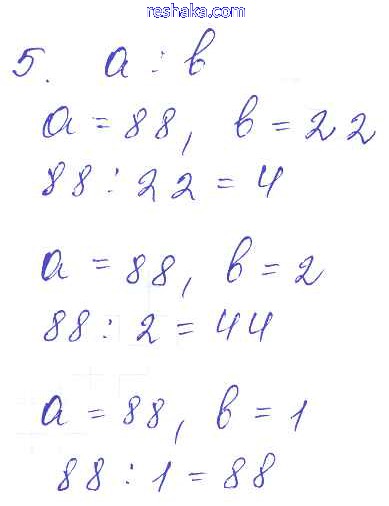 reshaka.com
5. a : b
a = 88, b = 22
88 : 22 = 4
a = 88, b = 2
88 : 2 = 44
a = 88, b = 1
88 : 1 = 88